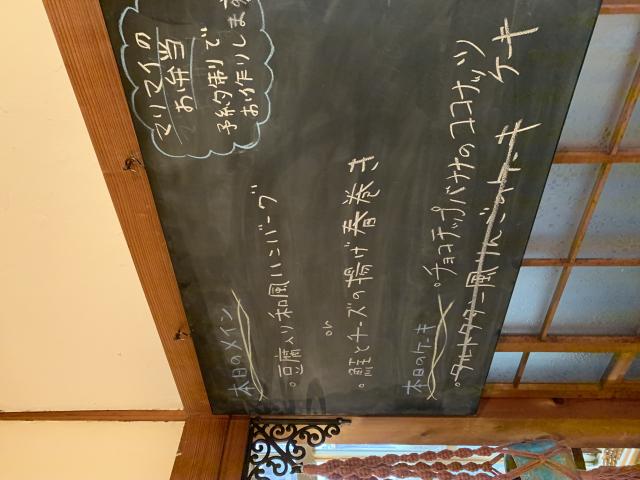 本日のメイン
。豆腐入り和風ハンバーグ
or
。鮭とチーズの揚げ春巻き
本日のケーキ
。チョコチップバナナのココナッツ
ケーキ
。タルトタタン風りんごのケーキ
マリマイの
お弁当
予約制で
お作りします